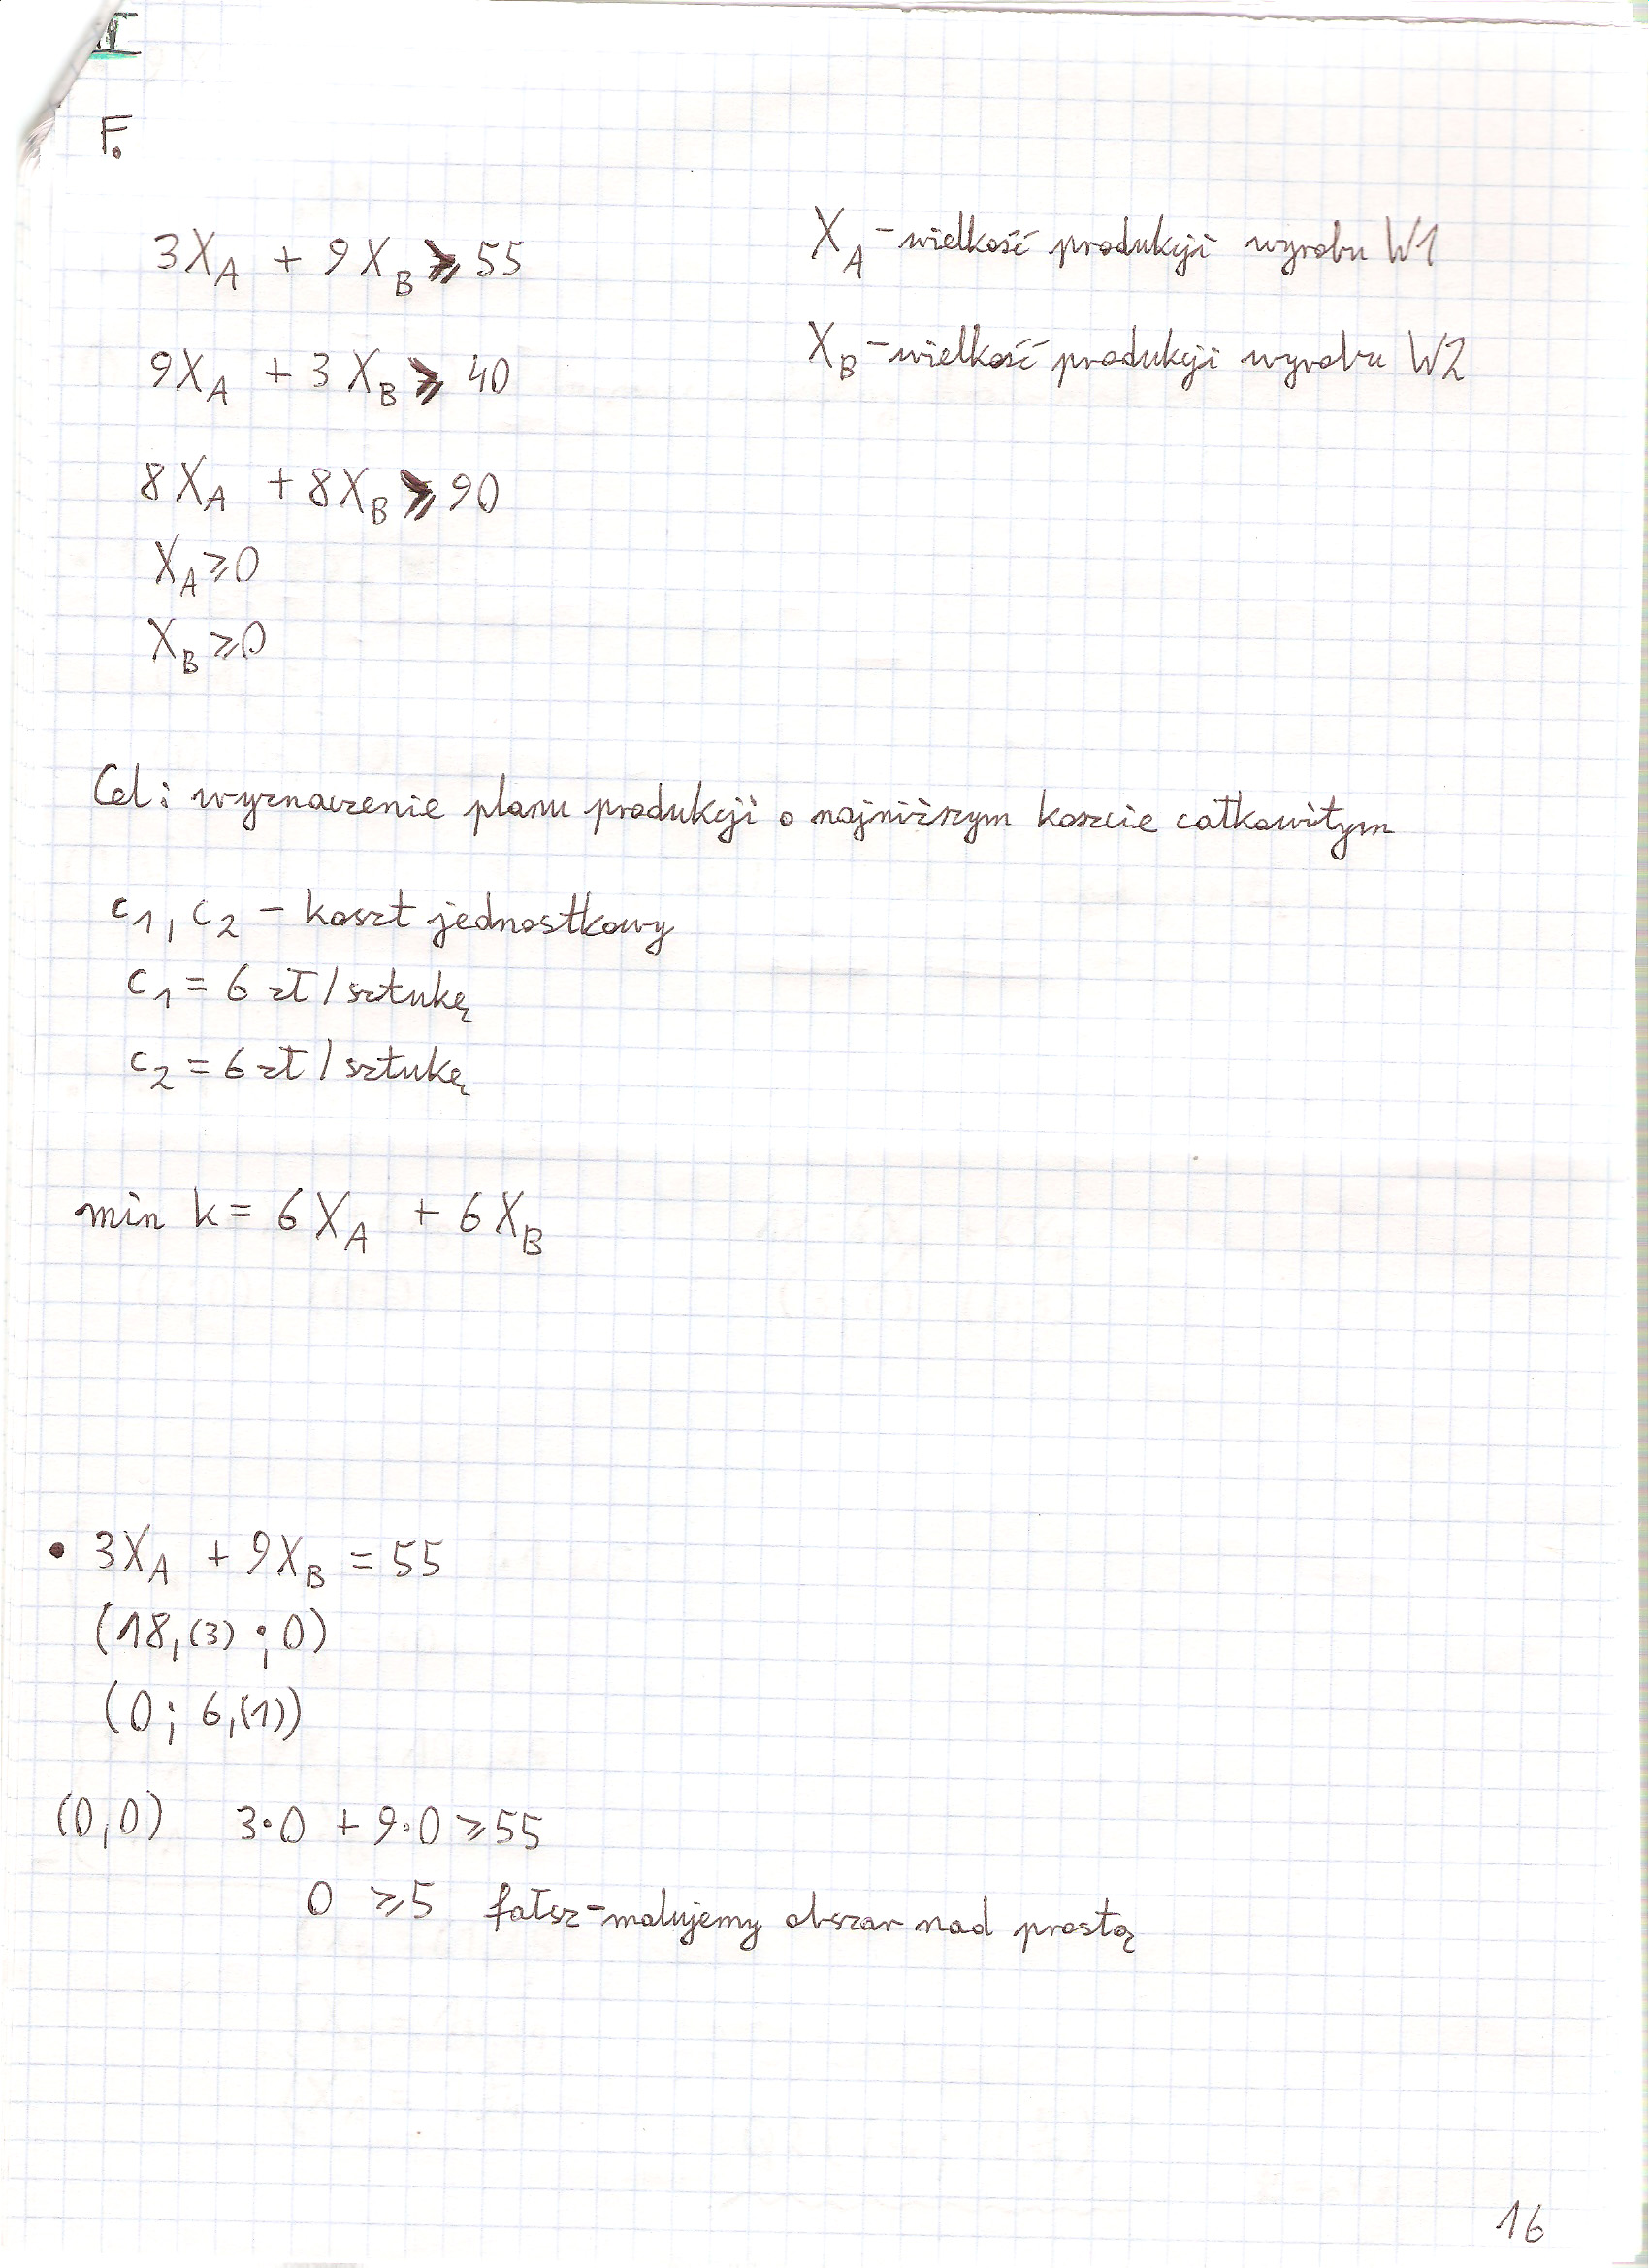 II
F.
3X_A + 9X_B ⩾ 55
X_A - wielkość produkcji wyrobu W1
9X_A + 3X_B ⩾ 40
X_B - wielkość produkcji wyrobu W2
8X_A + 8X_B ⩾ 90
X_A ⩾ 0
X_B ⩾ 0
Cel: wyznaczenie planu produkcji o najniższym koszcie całkowitym
c_1, c_2 - koszt jednostkowy
c_1 = 6 zł / sztukę
c_2 = 6 zł / sztukę
min k = 6X_A + 6X_B
• 3X_A + 9X_B = 55
(18,(3) ; 0)
(0; 6,(1))
(0,0) 3·0 + 9·0 ⩾ 55
0 ⩾ 5 fałsz - malujemy obszar nad prostą
16